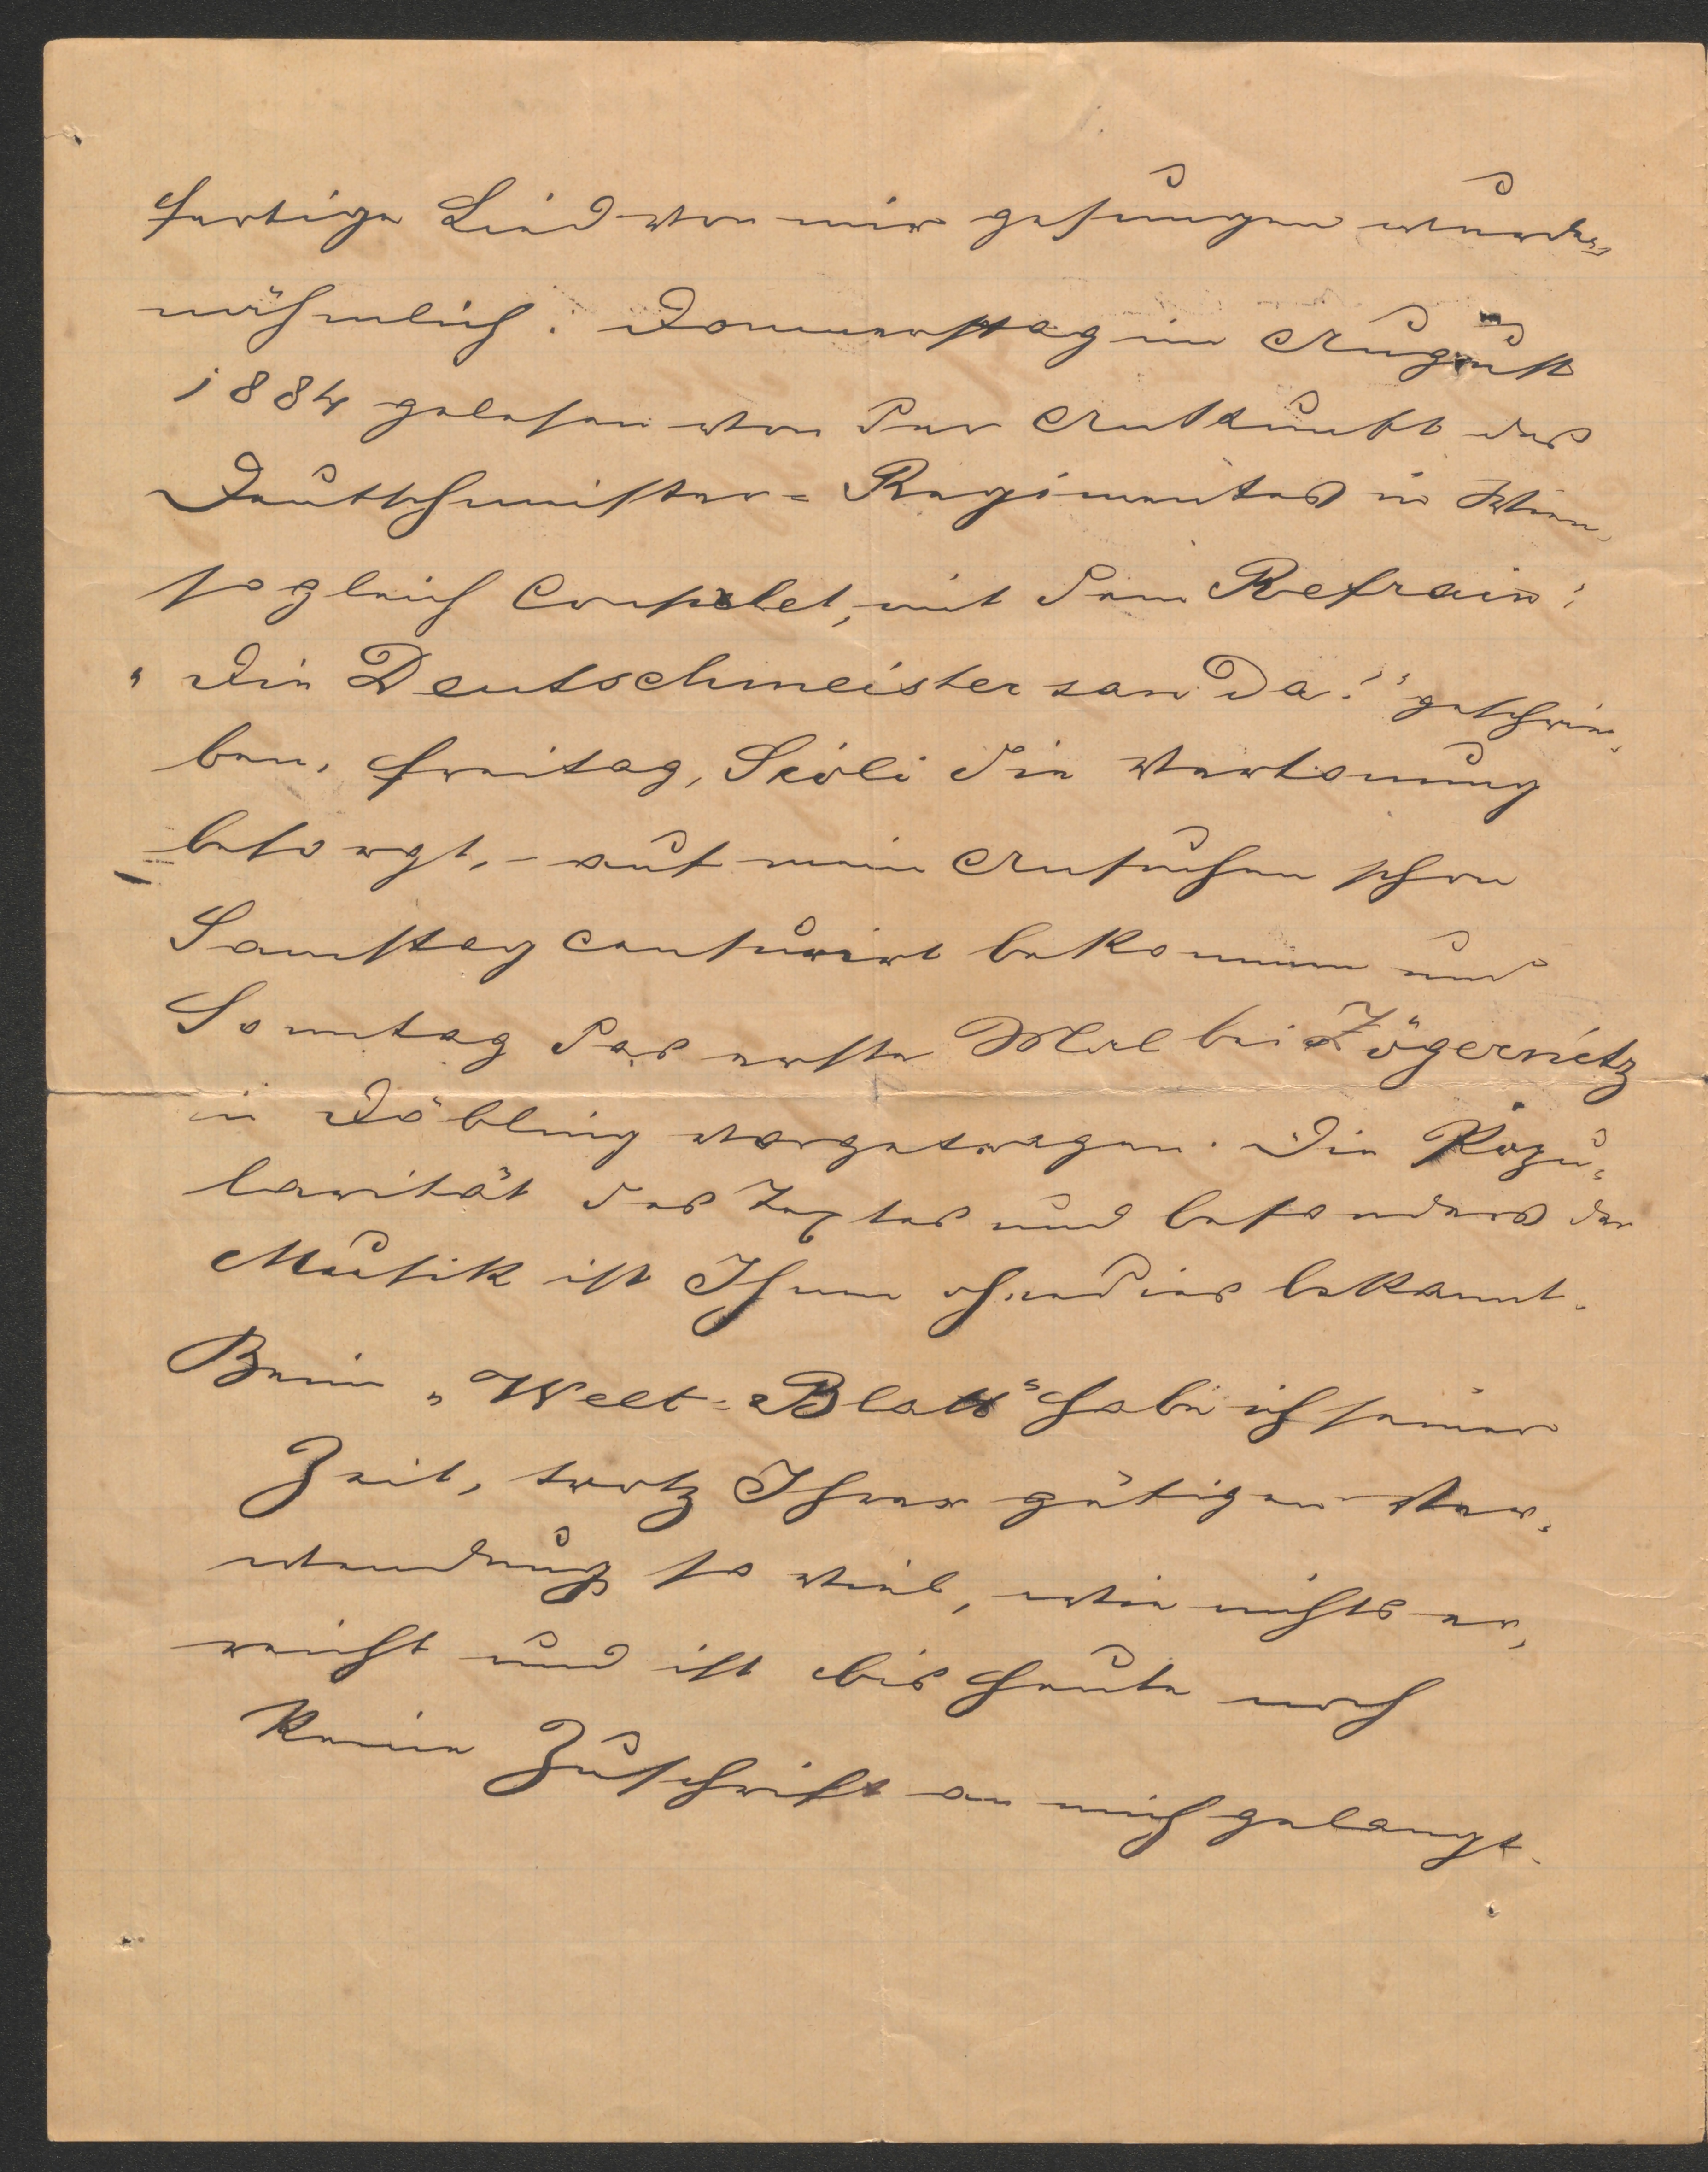 fertige Lied von mir gesungen wurde,
nähmlich: Donnerstag im August
1884 gelesen von der Ankunft des
Deutschmeister-Regimentes in Wien,
sogleich Couplet, mit dem Refrain:
„Die Deutschmeister san da!" geschrie-
ben, Freitag, Sioli die Vertonung
besorgt, - auf mein Ansuchen schon
Samstag censurirt bekommen und
Sonntag das erste Mal bei Zögernitz
in Döbling vorgetragen. Die Popu-
larität des Textes und besonders der
Musik ist Ihnen ohnedies bekannt.
Beim „Welt-Blatt" habe ich seiner
Zeit, trotz Ihrer gütigen Ver-
wendung so viel, wie nichts er-
reicht und ist bis heute noch
keine Zuschrift an mich gelangt.